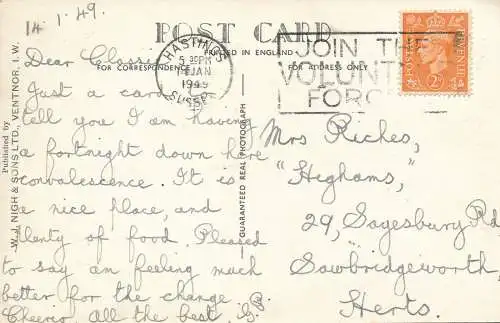 14.1.49.
POST CARD
PRINTED IN ENGLAND
FOR CORRESPONDENCE
FOR ADDRESS ONLY
HASTINGS
5 30PM
14 JAN
1949
SUSSEX
JOIN THE
VOLUNT
FORC
REVENUE
POSTAGE
2D
Dear
Just a card to
tell you I am having
a fortnight down here
convalescence. It is
a nice place, and
plenty of food. Pleased
to say am feeling much
better for the change.
Cheerio all the best
Mrs Riches,
"Highams",
29, Sayesbury Rd
Sawbridgeworth,
Herts.
Published by
W. J. NIGH & SONS LTD., VENTNOR, I. W.
GUARANTEED REAL PHOTOGRAPH